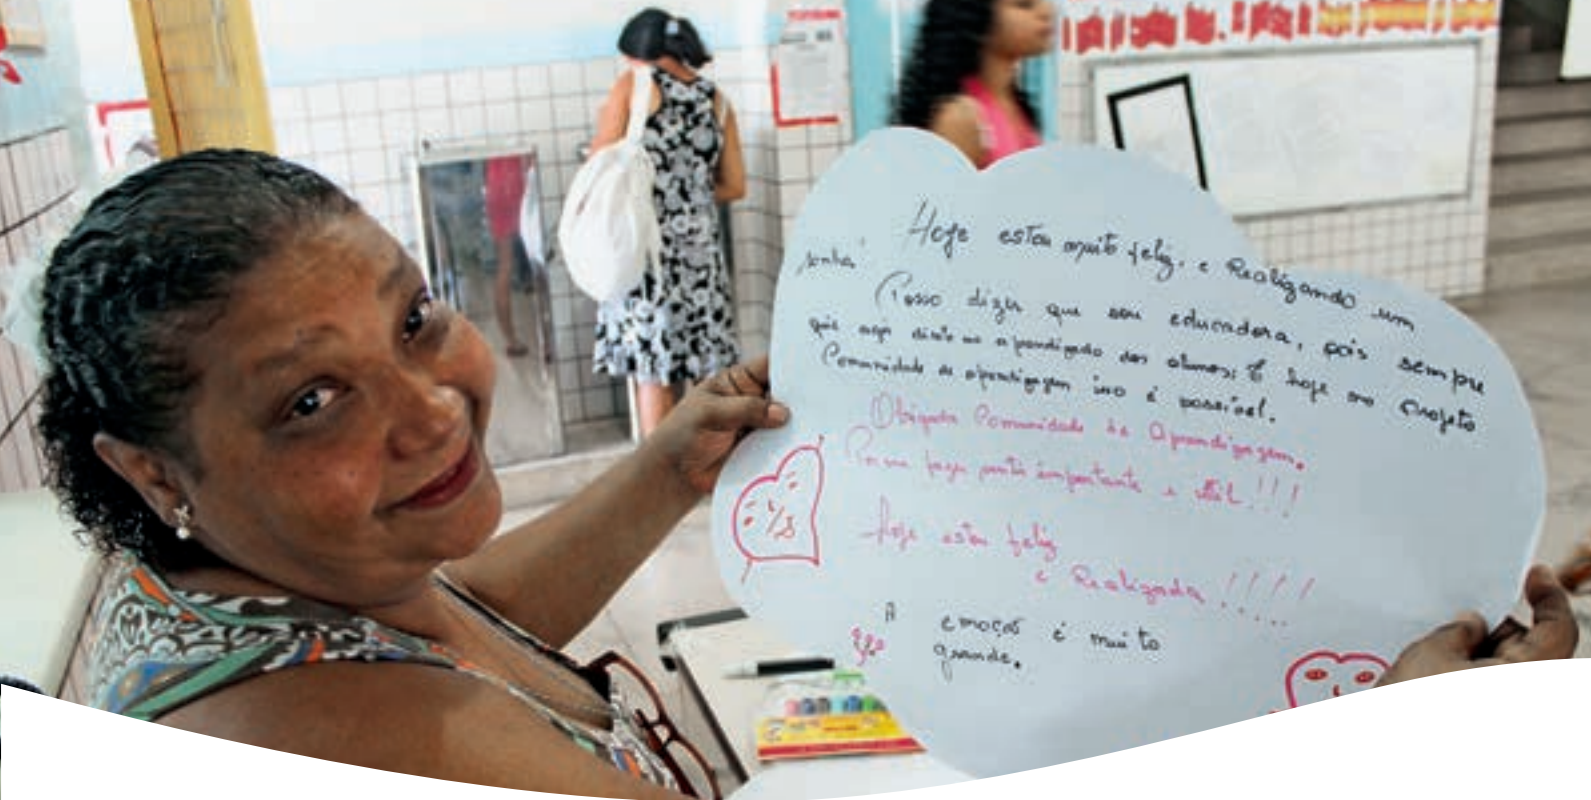 Hoje estou muito feliz, e Realizando um
sonho
Posso dizer que sou educadora, pois sempre
quis direto no aprendizado dos alunos; E hoje no Projeto
Comunidade de aprendizagem isso é possível.
Obrigada Comunidade de Aprendizagem.
Por me fazer sentir importante e útil!!!
Hoje estou feliz
e Realizada!!!!
A emoção é muito
grande.